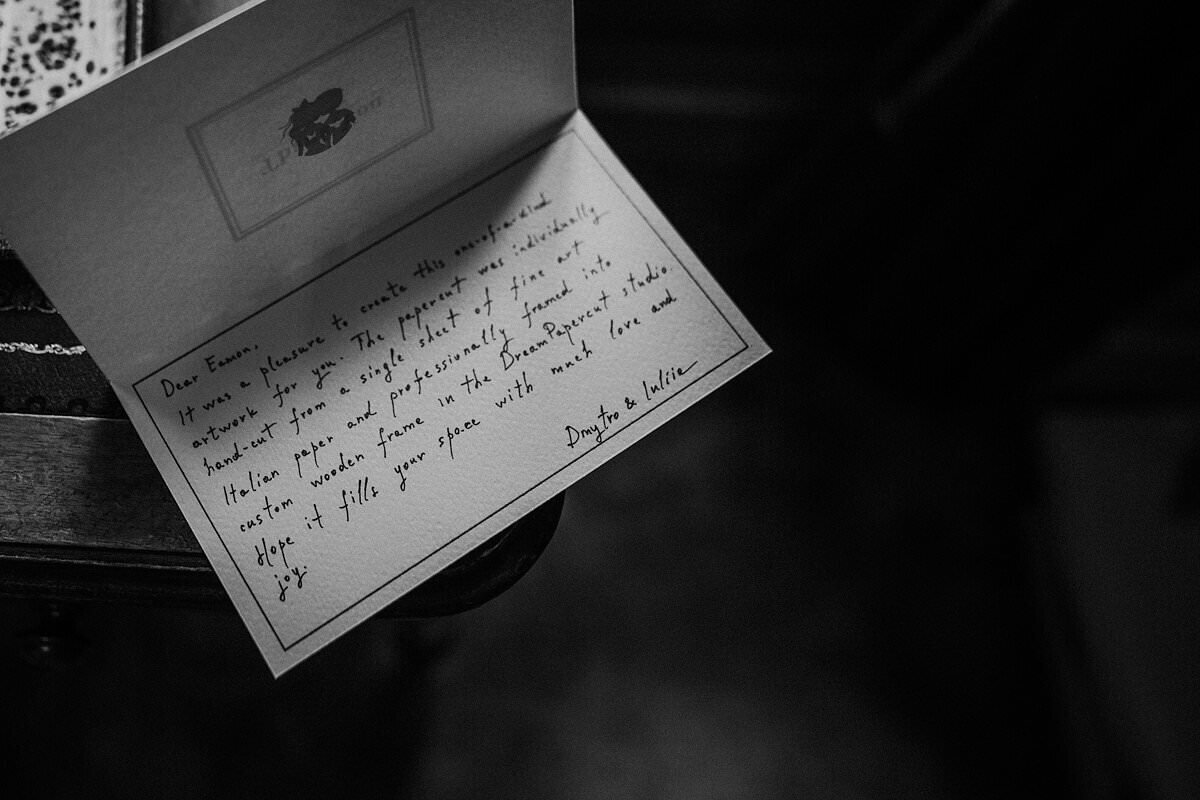 Dear Eamon,
It was a pleasure to create this one-of-a-kind
artwork for you. The papercut was individually
hand-cut from a single sheet of fine art
Italian paper and professionally framed into
custom wooden frame in the DreamPapercut studio.
Hope it fills your space with much love and
joy.
Dmytro & Iuliia